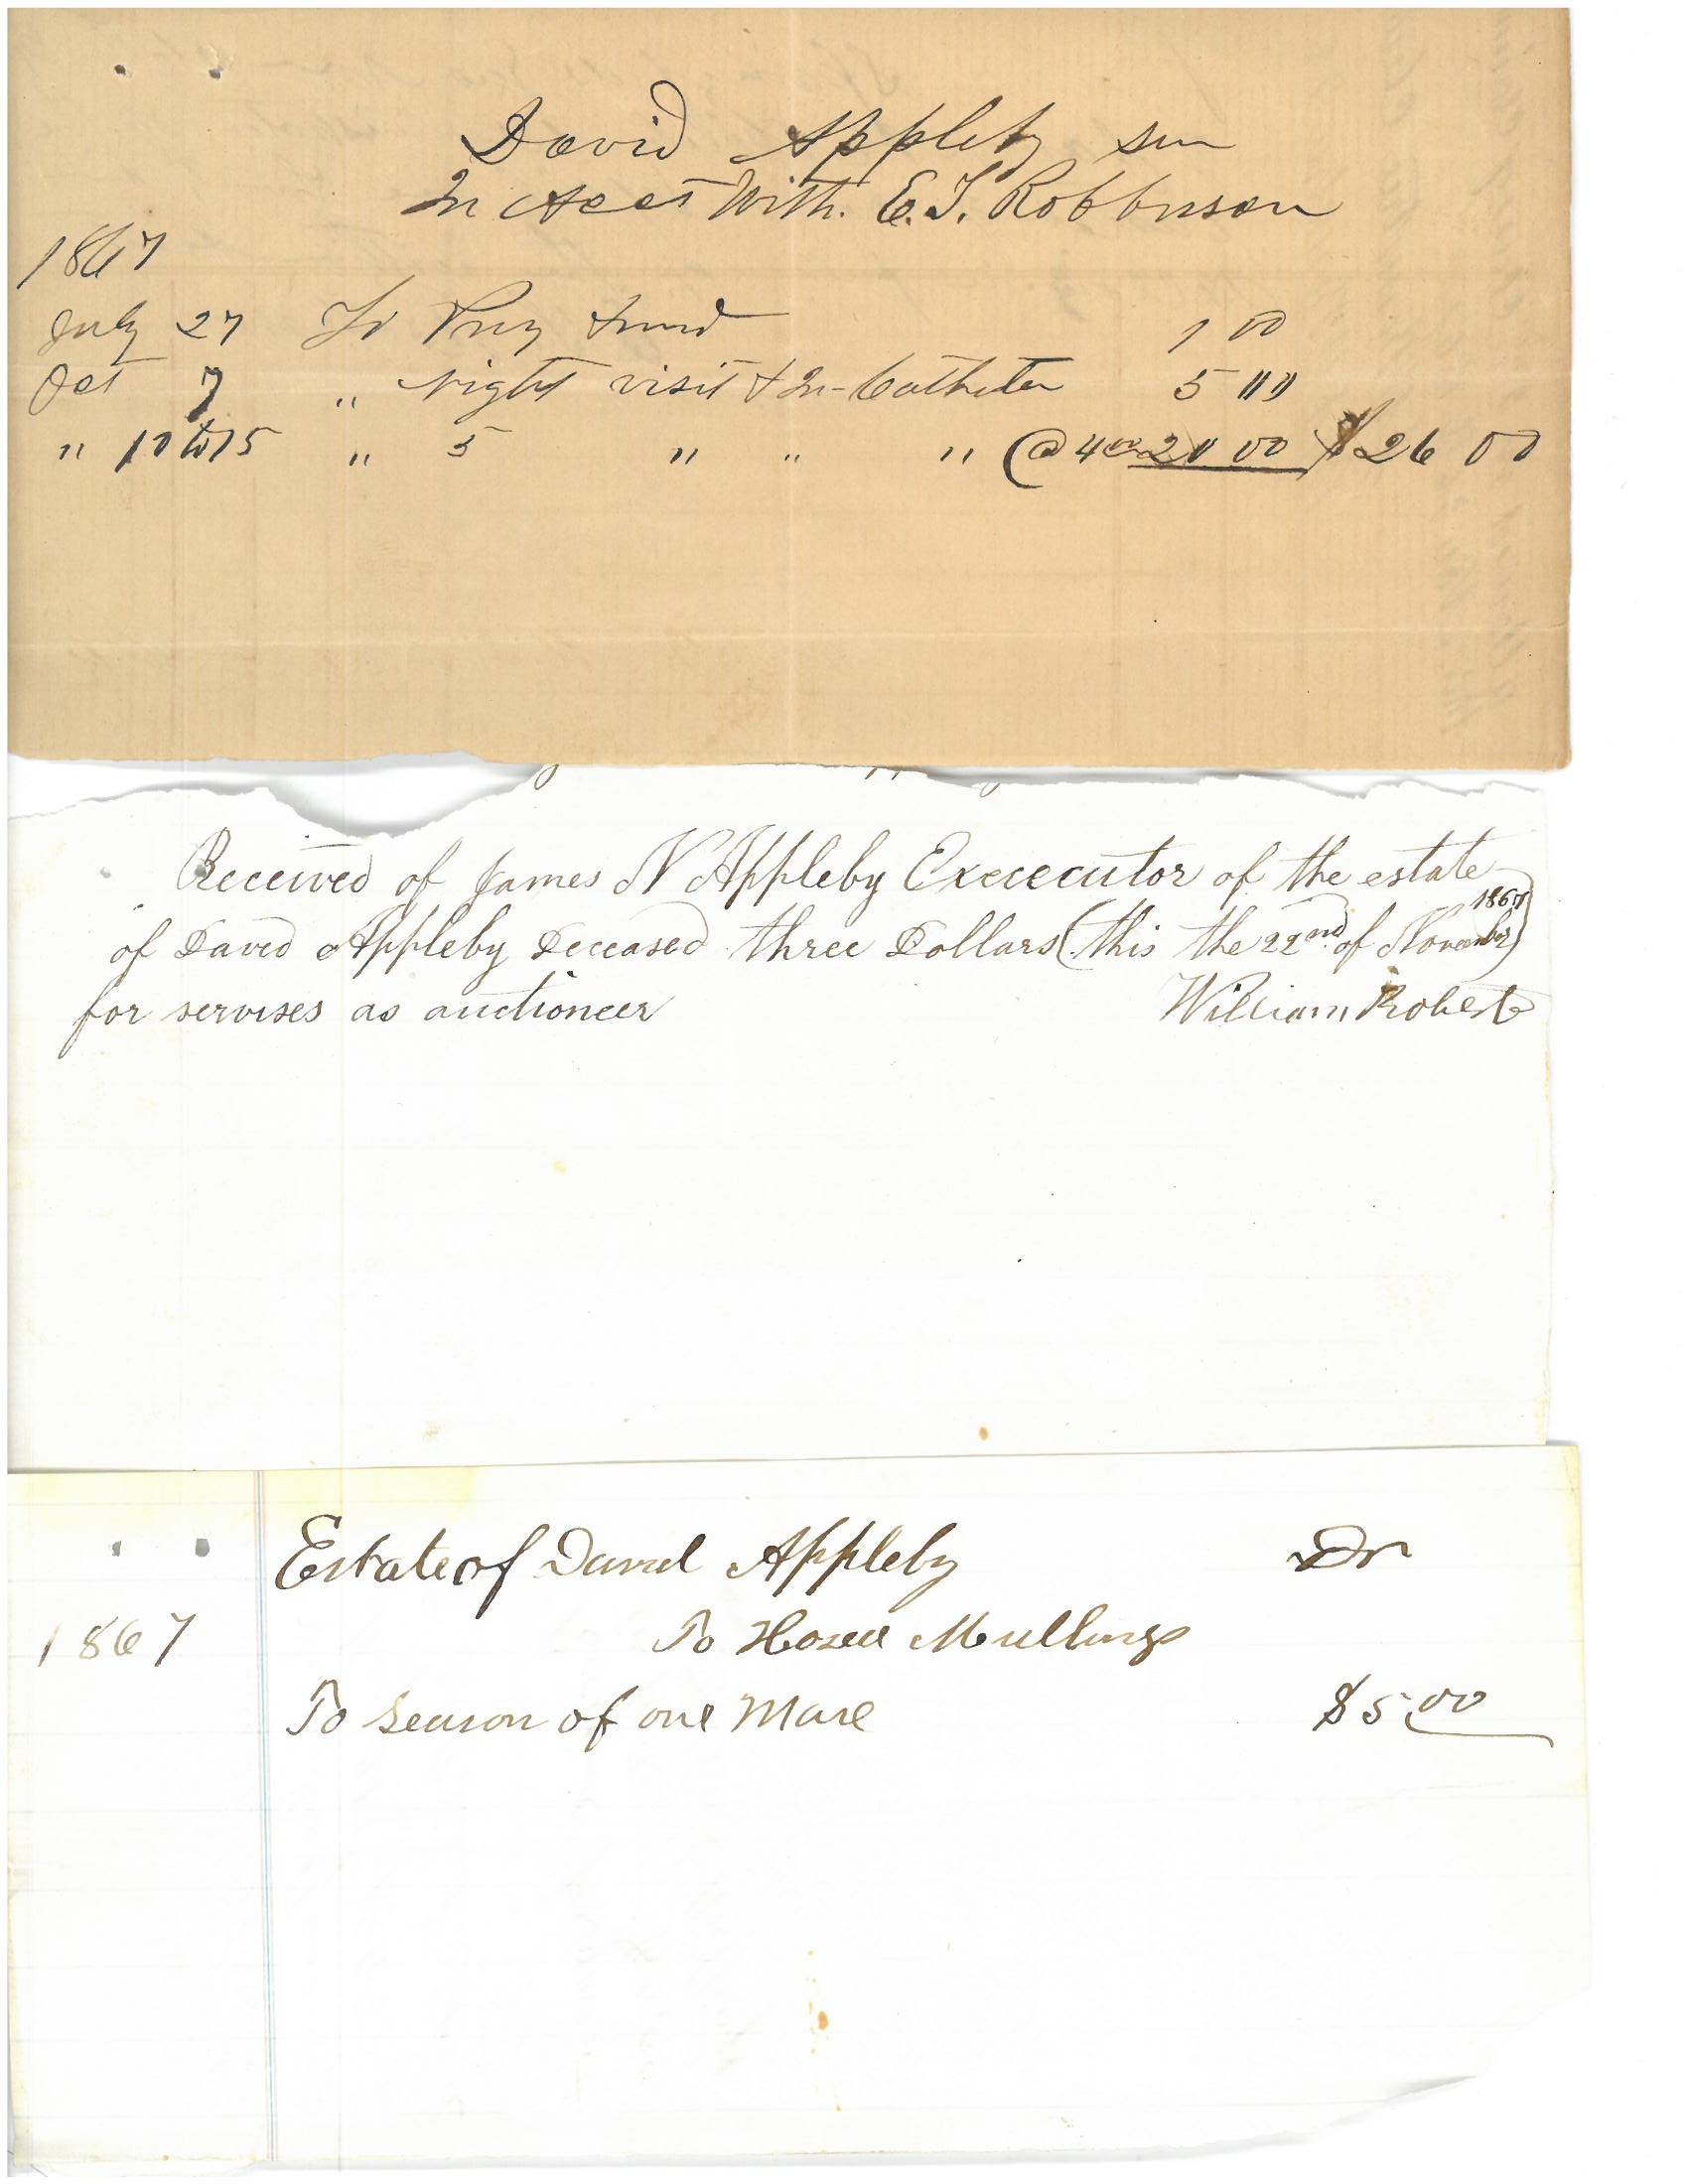 David Appleby sen
In Acct With. E. T. Robbinson
1867
July 27 To 1 00
Oct 7 " Night visit & In-Catheter 5 00
" 10 to 15 " 5 " " " @ 4 00 20 00 $26 00
Received of James N Appleby Exececutor of the estate
of David Appleby Deceased three Dollars (this the 22nd of November 1867)
for servises as auctioneer William Roberts
Estate of David Appleby Dr
1867 To Mullings
To Season of one Mare $5.00